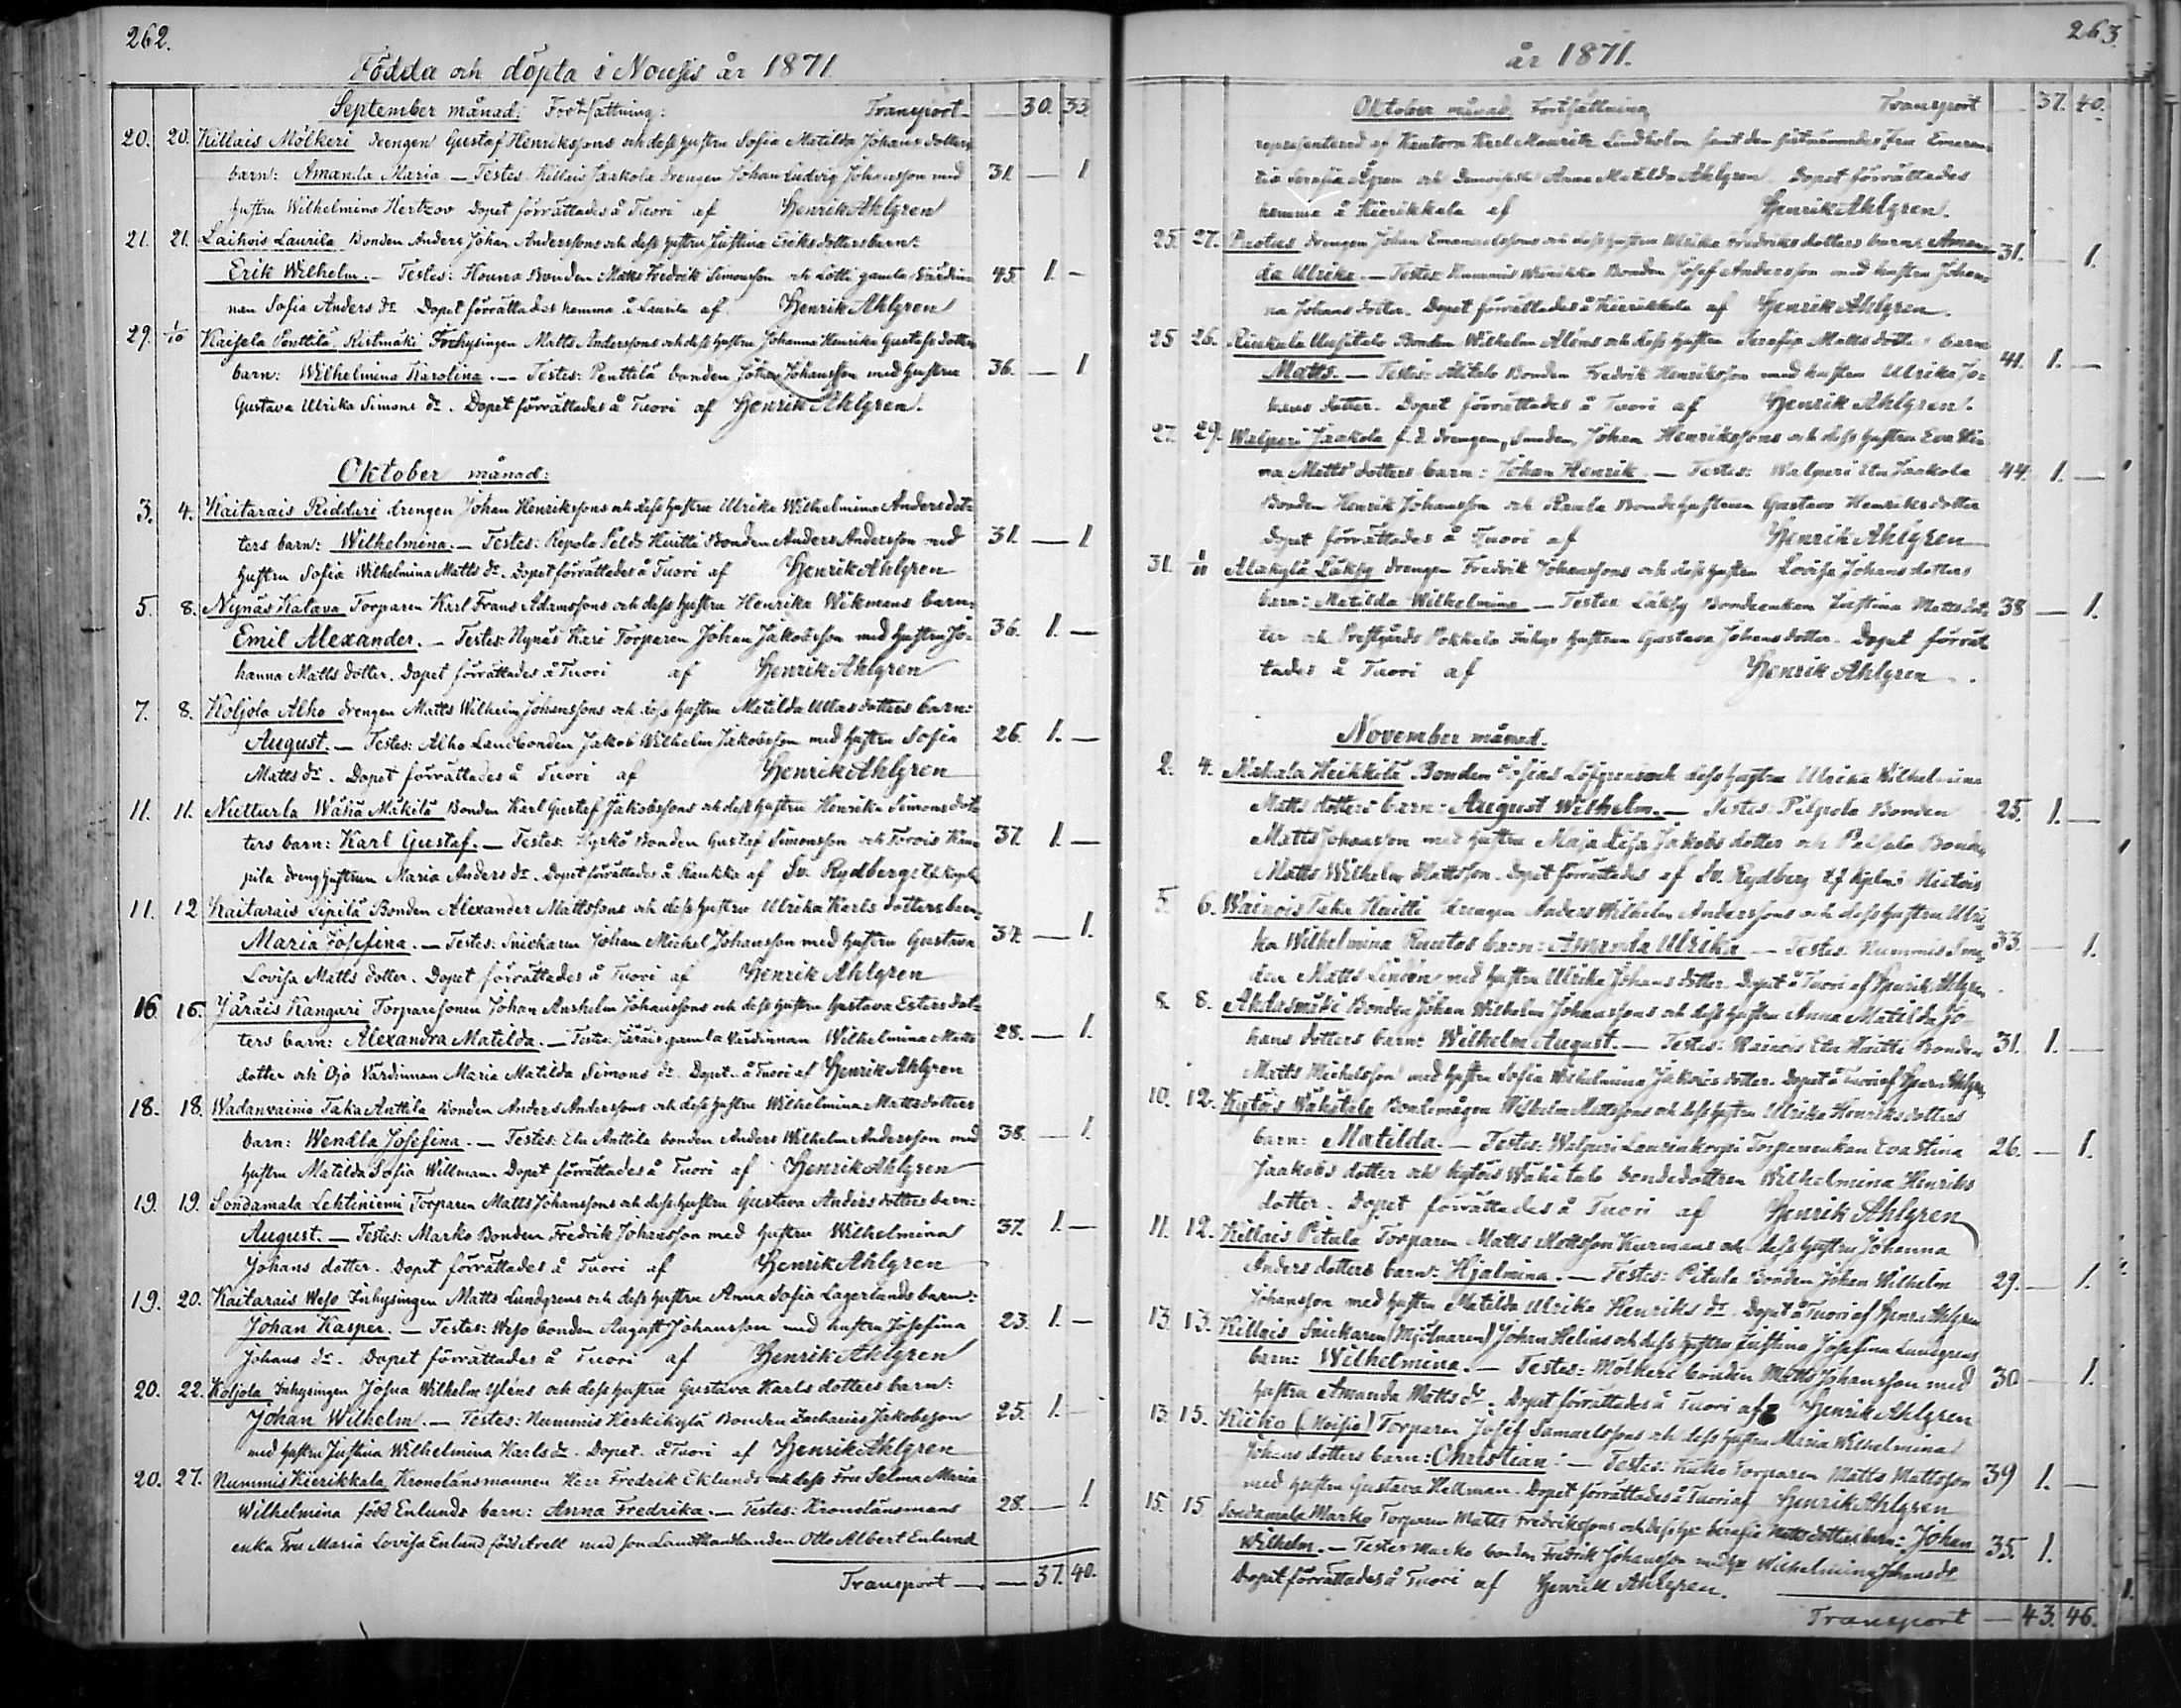 262.
Födda och döpta i Nousis år 1871
September månad: Fortsättning: Transport 30. 33.
20. 20. Killais Mölkeri drengen Gustaf Henrikssons och dess hustru Sofia Matilda Johans dotters
barn: Amanda Maria. — Testes Killais Jaakola drengen Johan Ludvig Johansson med 31. — 1
hustru Wilhelmina Hertzov Dopet förrättades å Tuori af Henrik Ahlgren
21. 21. Laihois Laurila Bonden Anders Johan Anderssons och dess hustru Justina Eriks dotters barn:
Erik Wilhelm. — Testes: Bonden Matts Fredrik Simonsson och Lotti gamla Värdin- 45. 1. —
nan Sofia Anders dr Dopet förrättades hemma å Laurila af Henrik Ahlgren
29. 1/10 Kaisela Penttilä Ristmäki Inhysingen Matts Anderssons och dess hustru Johanna Henrika Gustafs dotters
barn: Wilhelmina Karolina. — Testes: Penttilä bonden Johan Johansson med hustru 36. — 1
Gustava Ulrika Simons dr. Dopet förrättades å Tuori af Henrik Ahlgren.
Oktober månad:
3. 4. Kaitarais Ridduri drengen Johan Henrikssons och dess hustru Ulrika Wilhelmina Anders dot-
ters barn: Wilhelmina. — Testes: Repola Huitti Bonden Anders Andersson med 31. — 1
hustru Sofia Wilhelmina Matts dr. Dopet förrättades å Tuori af Henrik Ahlgren
5. 8. Nynäs Katava Torparen Karl Frans Adamssons och dess hustru Henrika Wikmans barn:
Emil Alexander. — Testes: Nynäs Kari Torparen Johan Jakobsson med hustru Jo- 36. 1. —
hanna Matts dotter. Dopet förrättades å Tuori af Henrik Ahlgren
7. 8. Koljola Alho drengen Matts Wilhelm Johanssons och dess hustru Matilda dotters barn:
August. — Testes: Alho Landbonden Jakob Wilhelm Jakobsson med hustru Sofia 26. 1. —
Matts dr. Dopet förrättades å Tuori af Henrik Ahlgren
11. 11. Nietturla Wähä Mäkilä Bonden Karl Gustaf Jakobssons och dess hustru Henrika Simons dot-
ters barn: Karl Gustaf. — Testes: Kyrkö Bonden Gustaf Simonsson och 37. 1. —
dreng hustrun Maria Anders dr. Dopet förrättades å Kaukka af Sv. Rydberg
11. 12 Kaitarais Sipilä Bonden Alexander Mattssons och dess hustru Ulrika Karls dotters barn
Maria Josefina. — Testes: Snickaren Johan Michel Johansson med hustru Gustava 37. — 1.
Lovisa Matts dotter. Dopet förrättades å Tuori af Henrik Ahlgren
16 16. Järäis Kangari Torparesonen Johan Anshelm Johanssons och dess hustru Gustava Esters dot-
ters barn: Alexandra Matilda. — Testes: Järäis gamla Värdinnan Wilhelmina Matts 28. — 1.
dotter och Ojo Värdinnan Maria Matilda Simons dr. Dopet. å Tuori af Henrik Ahlgren
18. 18. Wadanvainio Taka Anttila Bonden Anders Anderssons och dess hustru Wilhelmina Matts dotters
barn: Wendla Josefina. — Testes: Etu Anttila bonden Anders Wilhelm Andersson med 38. — 1.
hustru Matilda Sofia Willman. Dopet förrättades å Tuori af Henrik Ahlgren
19. 19. Sondamala Lehtiniemi Torparen Matts Johanssons och dess hustru Gustava Anders dotters barn:
August. — Testes: Marko Bonden Fredrik Johansson med hustru Wilhelmina 37. 1. —
Johans dotter. Dopet förrättades å Tuori af Henrik Ahlgren
19. 20. Kaitarais Weso Inhysingen Matts Lundgrens och dess hustru Anna Sofia Lagerlunds barn:
Johan Kasper. — Testes: Weso bonden August Johansson med hustru Josefina 23. 1. —
Johans dr. Dopet förrättades å Tuori af Henrik Ahlgren
20. 22. Koljola Inhysingen Josua Wilhelm Yléns och dess hustru Gustava Karls dotters barn:
Johan Wilhelm. — Testes: Nummis Kerkikylä Bonden Zacharias Jakobsson 25. 1. —
med hustru Justina Wilhelmina Karls dr. Dopet. å Tuori af Henrik Ahlgren
20. 27. Nummis Kierikkala Kronolänsmannen Herr Fredrik Eklunds och dess Fru Selma Maria
Wilhelmina född Enlunds barn: Anna Fredrika. — Testes: Kronolänsmans 28. — 1.
enka Fru Maria Lovisa Enlund född Avell med son Landthandlanden Otto Albert Enlund
Transport — 37. 40.
263.
år 1871.
Oktober månad. Fortsättning Transport 37. 40.
representerad af Kantorn Karl Mauritz Lindholm samt den förstnämndes Fru Emeren-
tia Serafia Ågren och Demoiselle Anna Matilda Ahlgren Dopet förrättades
hemma å Kierikkala af Henrik Ahlgren.
25. 27. Paotus drengen Johan Emanuelssons och dess hustru Ulrika Fredriks dotters barn: Aman-
da Ulrika. — Testes: Nummis Bonden Josef Andersson med hustru Johan- 31. — 1.
na Johans dotter. Dopet förrättades å Kierikkala af Henrik Ahlgren.
25 26. Rinkala Uusitalo Bonden Wilhelm Aléns och dess hustru Serafia Matts dotters barn
Matts. — Testes: Alitalo Bonden Fredrik Henriksson med hustru Ulrika Jo- 41. 1. —
hans dotter. Dopet förrättades å Tuori af Henrik Ahlgren.
27. 29. Walperi Jaakola f.d. drengen, Smeden, Johan Henrikssons och dess hustru Eva Sti-
na Matts dotters barn: Johan Henrik. — Testes: Walperi Etu Jaakola 44. 1. —
Bonden Henrik Johansson och Bondehustrun Gustava Henriks dotter
Dopet förrättades å Tuori af Henrik Ahlgren
31. 1/11 Alakylä Läksy drengen Fredrik Johanssons och dess hustru Lovisa Johans dotters
barn: Matilda Wilhelmina — Testes Läksy Bondeenkan Justina Matts dot- 38 — 1.
ter och Prestgårds Pokkala Inhys hustrun Gustava Johans dotter. Dopet förrät-
tades å Tuori af Henrik Ahlgren.
November månad.
2. 4. Makala Heikkilä Bonden Löfgrens och dess hustru Ulrika Wilhelmina
Matts dotters barn: August Wilhelm. — Testes Pilpola Bonden 25. 1. —
Matts Johansson med hustru Maja Lisa Jakobs dotter och Bonden
Matts Wilhelm Mattsson. Dopet förrättades af Sv. Rydberg
5. 6. Wainois Taka Huitti drengen Anders Wilhelm Anderssons och dess hustru Ulri-
ka Wilhelmina barn: Amanda Ulrika — Testes. Nummis Sme- 33. — 1.
den Matts Lindén med hustru Ulrika Johans dotter. Dopet å Tuori af Henrik Ahlgren
8. 8. Ahdasmäki Bonden Johan Wilhelm Johanssons och dess hustru Anna Matilda Jo-
hans dotters barn: Wilhelm August. — Testes: Wainois Etu Huitti Bonden 31. 1. —
Matts Michelsson med hustru Sofia Wilhelmina Jakobs dotter. Dopet å Tuori af Henr. Ahlgren
10. 12. Kytöis Wähätalo Bondemågen Wilhelm Mattssons och dess hustru Ulrika Henriks dotters
barn: Matilda. — Testes: Walperi Laurinkorpi Torpareenkan Eva Stina 26. — 1.
Jaakobs dotter och Kytöis Wähätalo bondedottren Wilhelmina Henriks
dotter. Dopet förrättades å Tuori af Henrik Ahlgren
11. 12. Killais Pitula Torparen Matts Mattsson Kurmans och dess hustru Johanna
Anders dotters barn: Hjalmina. — Testes: Pitula Bonden Johan Wilhelm 29. — 1.
Johansson med hustru Matilda Ulrika Henriks dr. Dopet å Tuori af Henr. Ahlgren
13. 13. Killais Snickaren (Mjölnaren) Johan Helins och dess hustru Justina Josefina Lundgrens
barn: Wilhelmina. — Testes: Mölkeri bonden Matts Johansson med 30 — 1.
hustru Amanda Matts dr. Dopet förrättades å Tuori af Henrik Ahlgren
13. 15. Kuko (Moisio) Torparen Josef Samuelssons och dess hustru Maria Wilhelmina
Johans dotters barn: Christian: — Testes: Kuko Torparen Matts Mattsson 39 1. —
med hustru Gustava Hellman. Dopet förrättades å Tuori af Henrik Ahlgren
15. 15 Sondamala Marko Torparen Matts Fredrikssons och dess hu Serafia Matts dotters barn: Johan
Wilhelm. — Testes Marko bonden Fredrik Johansson med hu Wilhelmina Johans dr 35. 1.
Dopet förrättades å Tuori af Henrik Ahlgren.
Transport — 43. 46.